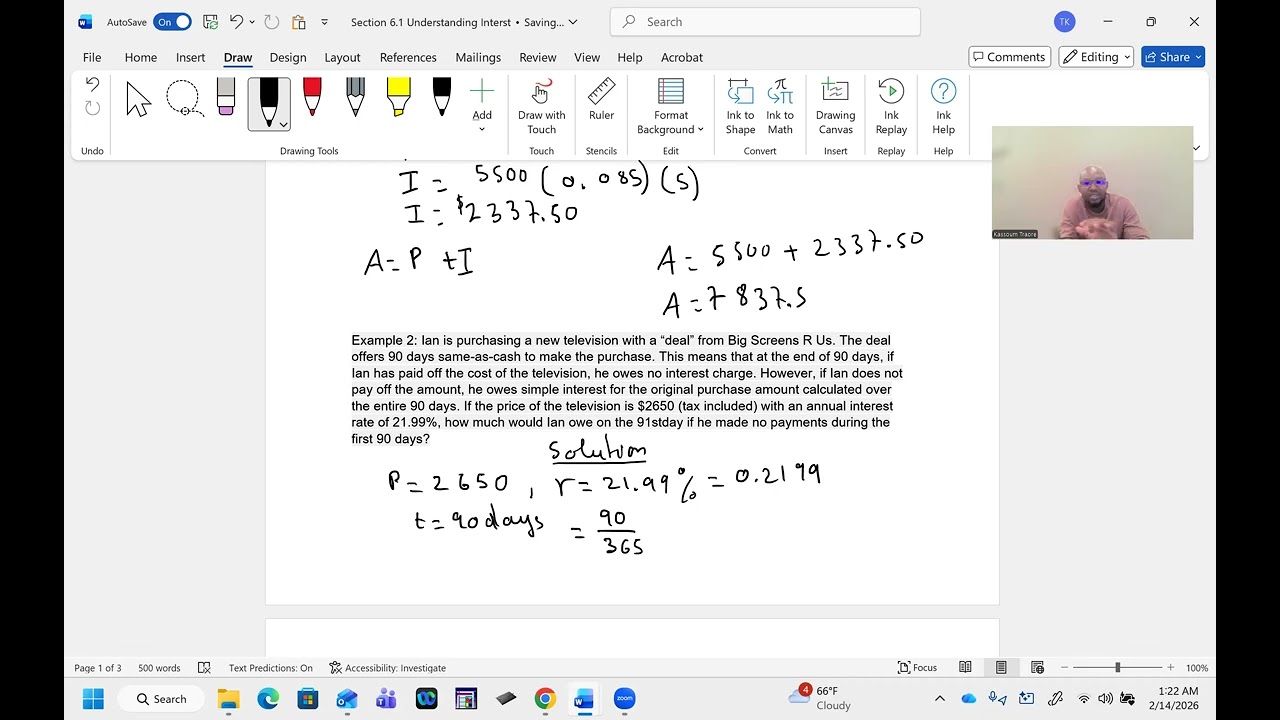 AutoSave On Section 6.1 Understanding Interst • Saving... Search TK
File Home Insert Draw Design Layout References Mailings Review View Help Acrobat Comments Editing Share
Add Draw with Touch Ruler Format Background Ink to Shape Ink to Math Drawing Canvas Ink Replay Ink Help
Undo Drawing Tools Touch Stencils Edit Convert Insert Replay Help
I = 5500 (0.085) (5)
I = $2337.50
A = P + I
A = 5500 + 2337.50
A = 7837.5
Kassoum Traore
Example 2: Ian is purchasing a new television with a “deal” from Big Screens R Us. The deal
offers 90 days same-as-cash to make the purchase. This means that at the end of 90 days, if
Ian has paid off the cost of the television, he owes no interest charge. However, if Ian does not
pay off the amount, he owes simple interest for the original purchase amount calculated over
the entire 90 days. If the price of the television is $2650 (tax included) with an annual interest
rate of 21.99%, how much would Ian owe on the 91stday if he made no payments during the
first 90 days?
Solution
P = 2650 , r = 21.99% = 0.2199
t = 90 days = 90/365
Page 1 of 3 500 words Text Predictions: On Accessibility: Investigate Focus 100%
Search zoom 4 66°F Cloudy 1:22 AM 2/14/2026